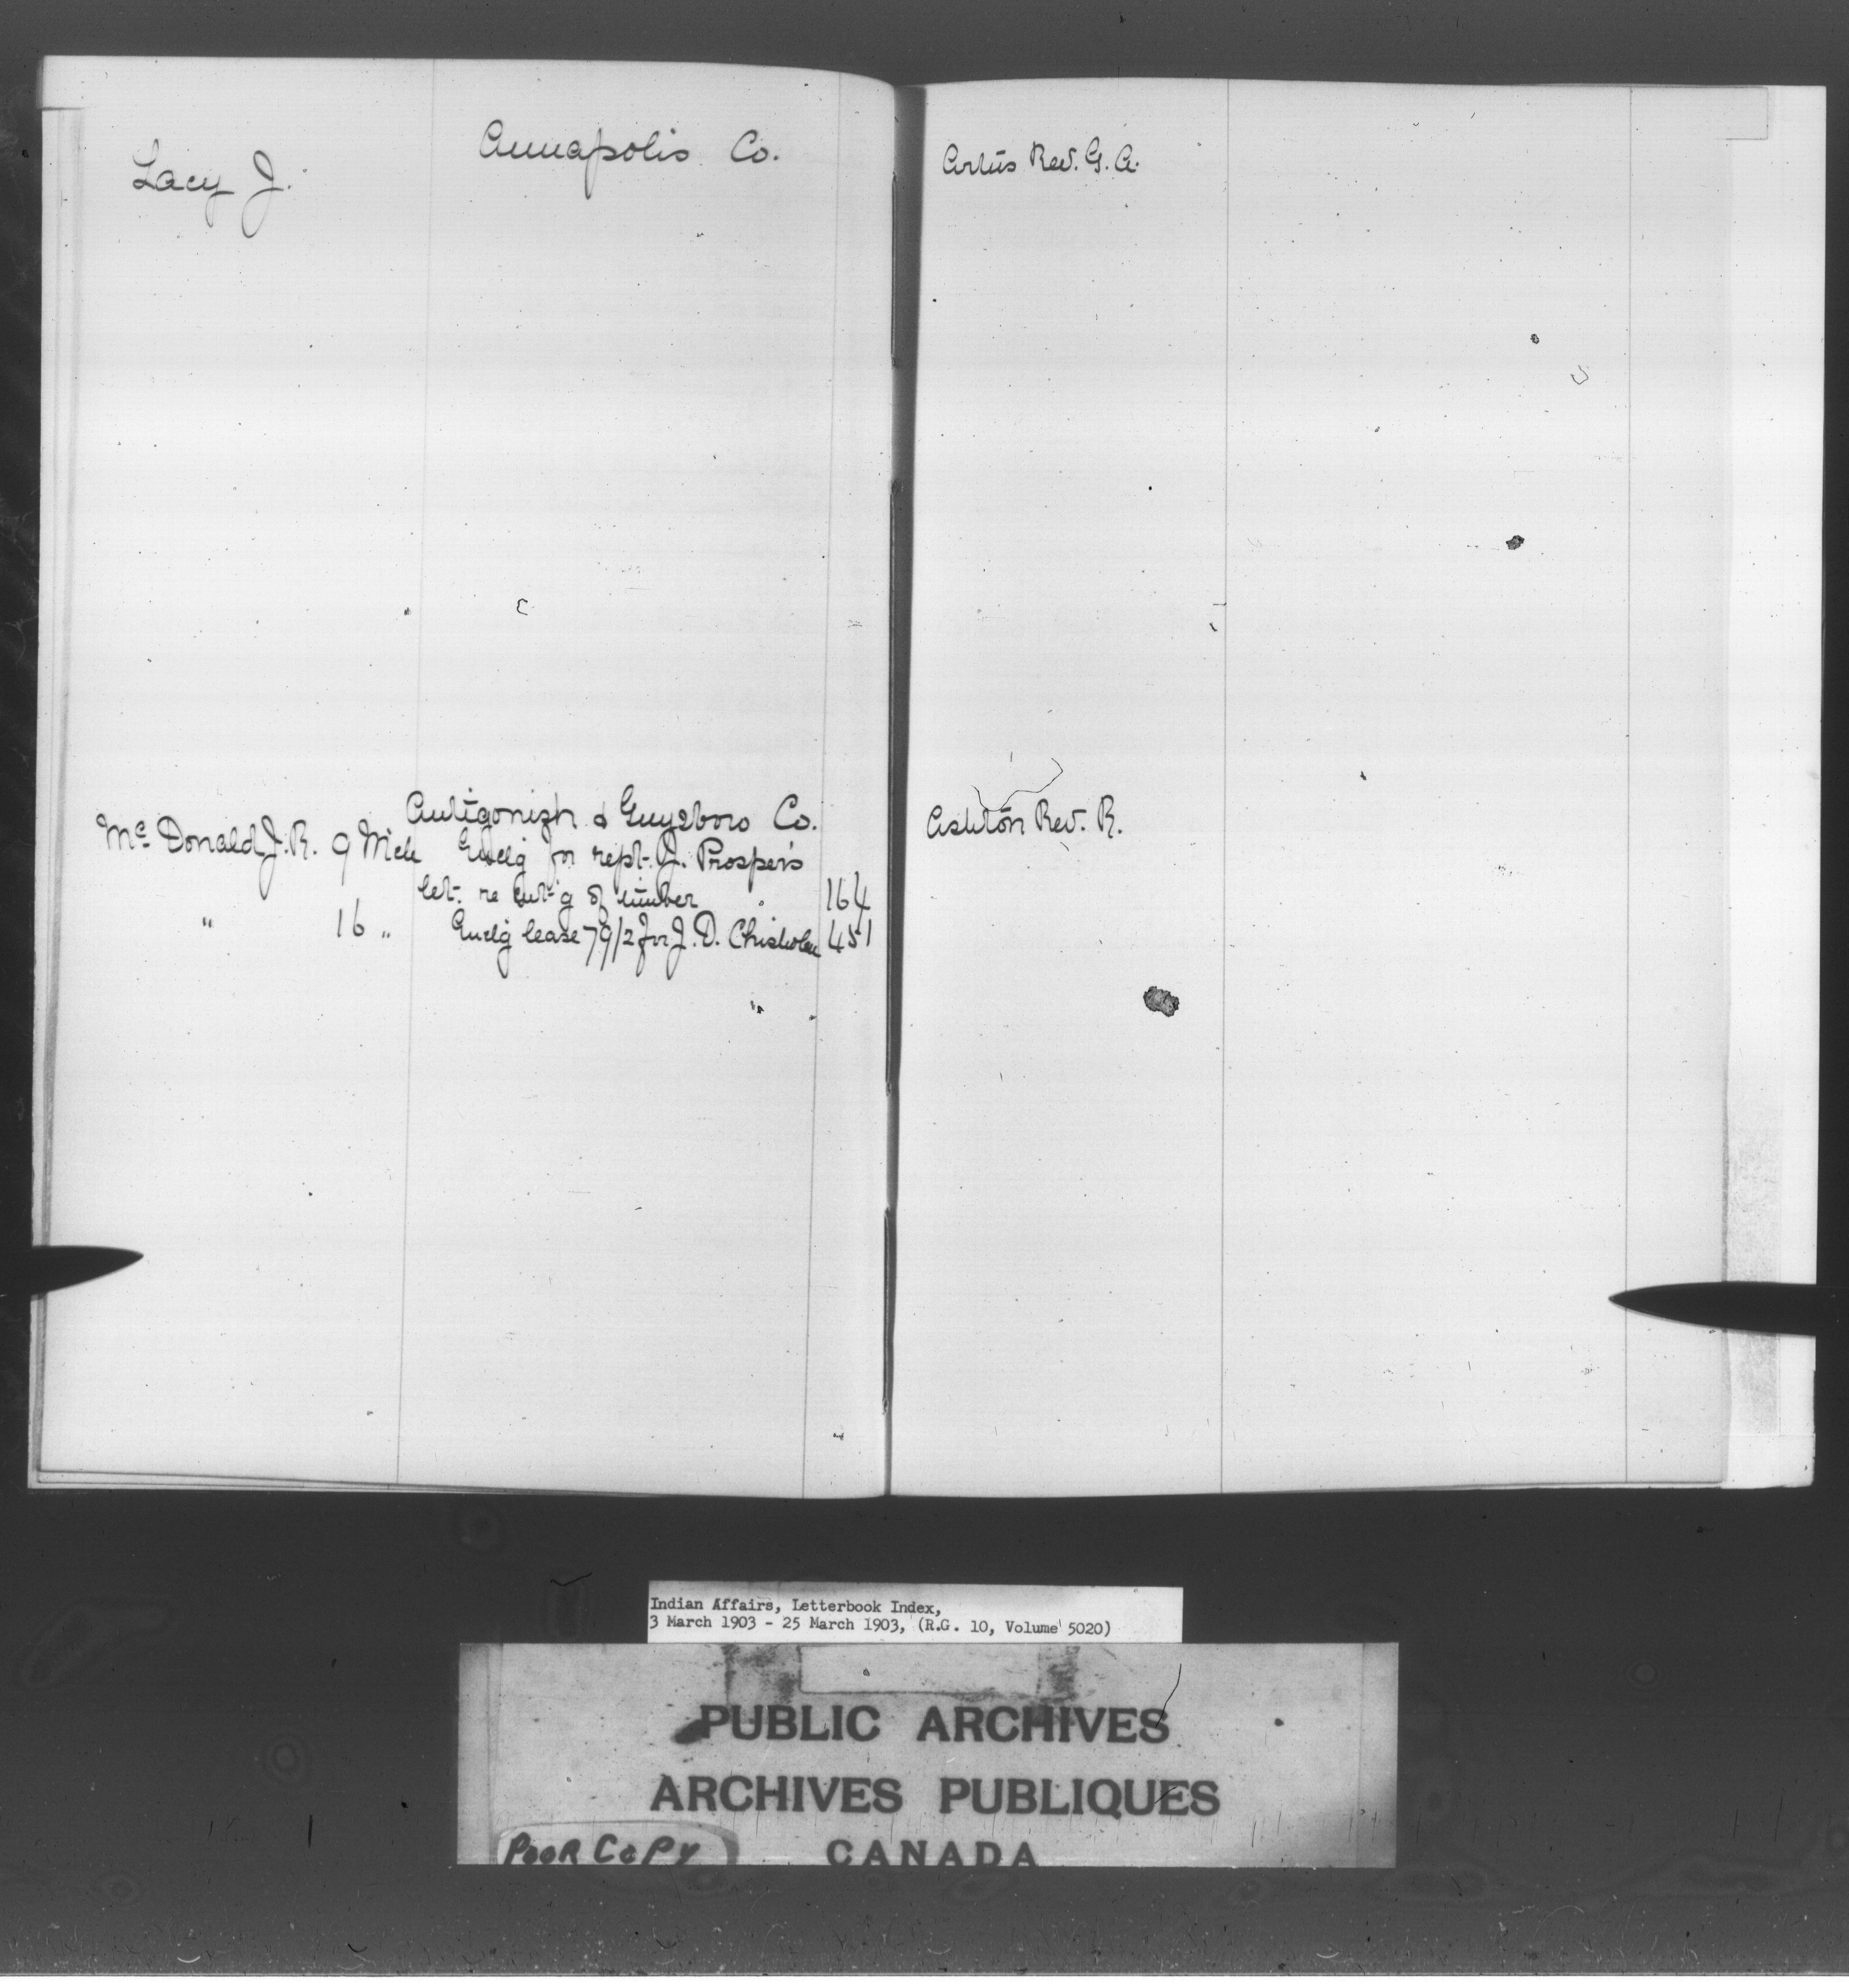 Annapolis Co.
Lacy J.
Antigonish & Guysboro Co.
McDonald J. R. 9 Mch Encl'g for rept. J. Prosper's
let. re cut'g of timber 164
" 16 " Encl'g lease 7912 for J. D. Chisholm 451
Artus Rev. G. A.
Ashton Rev. R.
Indian Affairs, Letterbook Index,
3 March 1903 - 25 March 1903, (R.G. 10, Volume 5020)
PUBLIC ARCHIVES
ARCHIVES PUBLIQUES
CANADA
POOR COPY